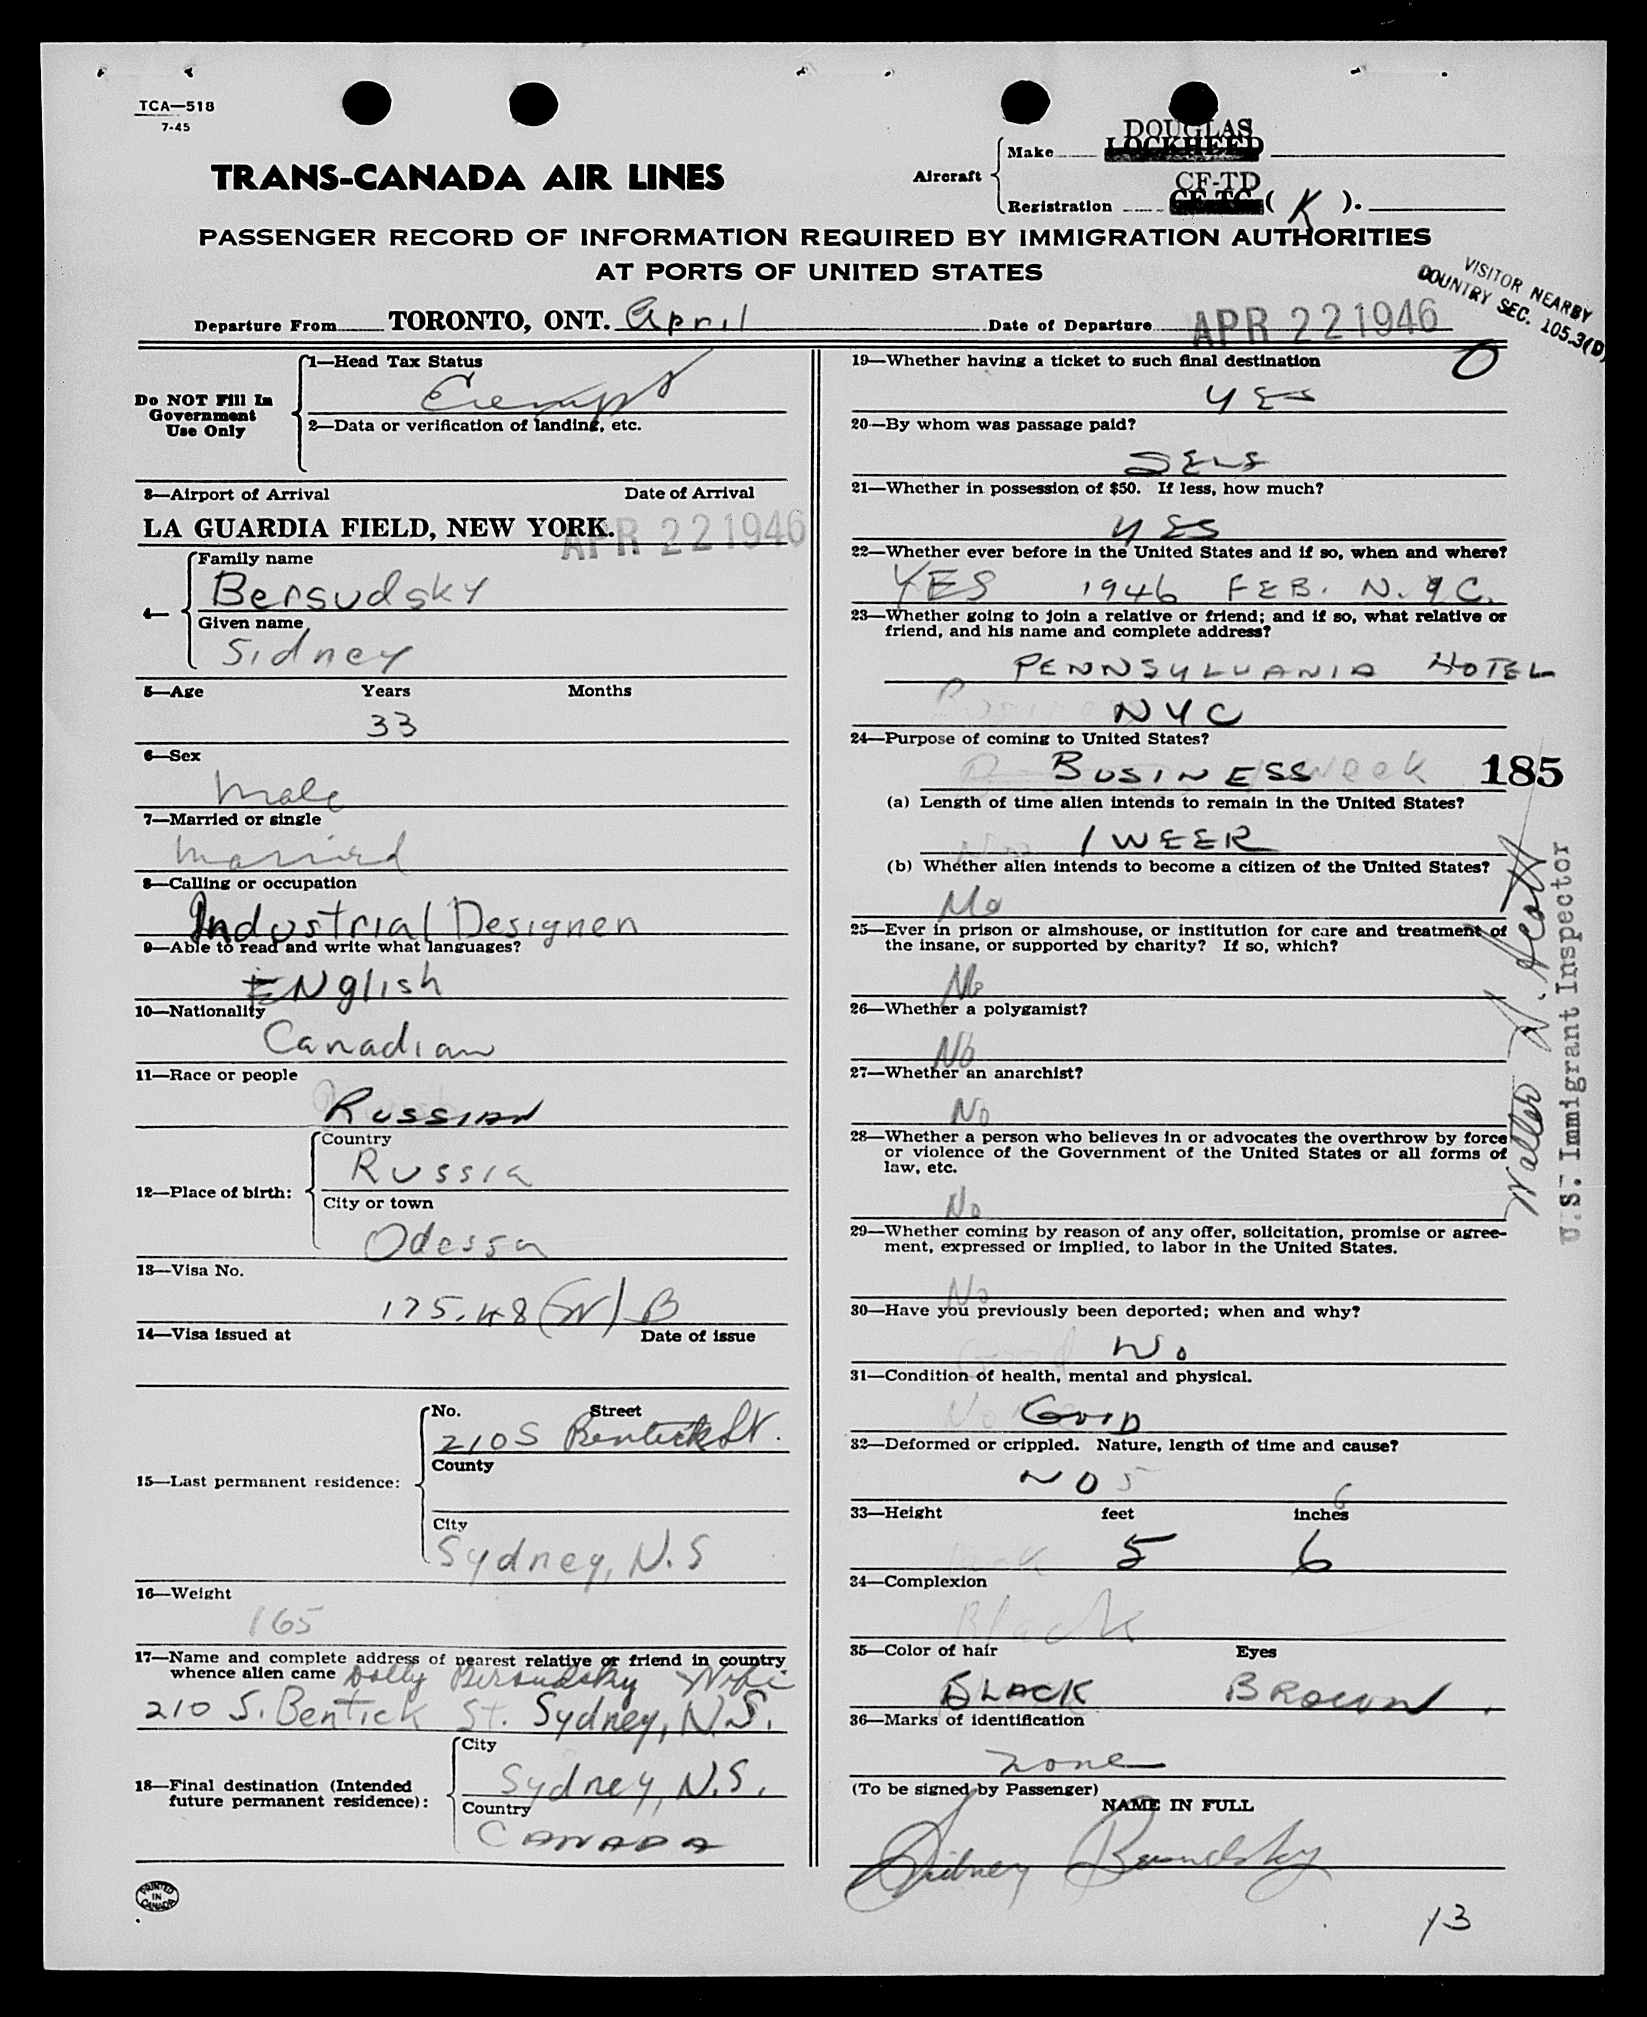 TCA—518
7-45
DOUGLAS
LOCKHEED
Aircraft
Make
CF-TD
CF-TC
Registration ( K ).
TRANS-CANADA AIR LINES
PASSENGER RECORD OF INFORMATION REQUIRED BY IMMIGRATION AUTHORITIES
AT PORTS OF UNITED STATES
VISITOR NEARBY
COUNTRY SEC. 105.3(D)
Departure From TORONTO, ONT. April Date of Departure APR 22 1946
Do NOT Fill In
Government
Use Only
1—Head Tax Status
Exempt
2—Data or verification of landing, etc.
3—Airport of Arrival Date of Arrival
LA GUARDIA FIELD, NEW YORK. APR 22 1946
4—
Family name
Bersudsky
Given name
Sidney
5—Age Years Months
33
6—Sex
Male
7—Married or single
Married
8—Calling or occupation
Industrial Designer
9—Able to read and write what languages?
ENglish
10—Nationality
Canadian
11—Race or people
RUSSIAN
12—Place of birth:
Country
Russia
City or town
Odessa
13—Visa No.
175.48 (W) B
14—Visa issued at Date of issue
15—Last permanent residence:
No. Street
210 S Bentick St.
County
City
Sydney, N.S
16—Weight
165
17—Name and complete address of nearest relative or friend in country
whence alien came Dolly Bersudsky Wife
210 S. Bentick St. Sydney, N.S.
18—Final destination (Intended
future permanent residence):
City
Sydney, N.S.
Country
CANADA
PRINTED
IN
CANADA
19—Whether having a ticket to such final destination
0
YES
20—By whom was passage paid?
SELF
21—Whether in possession of $50. If less, how much?
YES
22—Whether ever before in the United States and if so, when and where?
YES 1946 FEB. N.YC.
23—Whether going to join a relative or friend; and if so, what relative or
friend, and his name and complete address?
PENNSYLVANIA HOTEL
NYC
24—Purpose of coming to United States?
BUSINESS week
185
(a) Length of time alien intends to remain in the United States?
1 WEEK
(b) Whether alien intends to become a citizen of the United States?
No
25—Ever in prison or almshouse, or institution for care and treatment of
the insane, or supported by charity? If so, which?
No
26—Whether a polygamist?
No
27—Whether an anarchist?
No
28—Whether a person who believes in or advocates the overthrow by force
or violence of the Government of the United States or all forms of
law, etc.
No
29—Whether coming by reason of any offer, solicitation, promise or agree-
ment, expressed or implied, to labor in the United States.
No
30—Have you previously been deported; when and why?
Good No
31—Condition of health, mental and physical.
None GOOD
32—Deformed or crippled. Nature, length of time and cause?
NO 5 6
33—Height feet inches
5 6
34—Complexion
Black
35—Color of hair Eyes
BLACK BROWN
36—Marks of identification
none
(To be signed by Passenger)
NAME IN FULL
Sidney Bersudsky
13
Walter N. Scott
U.S. Immigrant Inspector